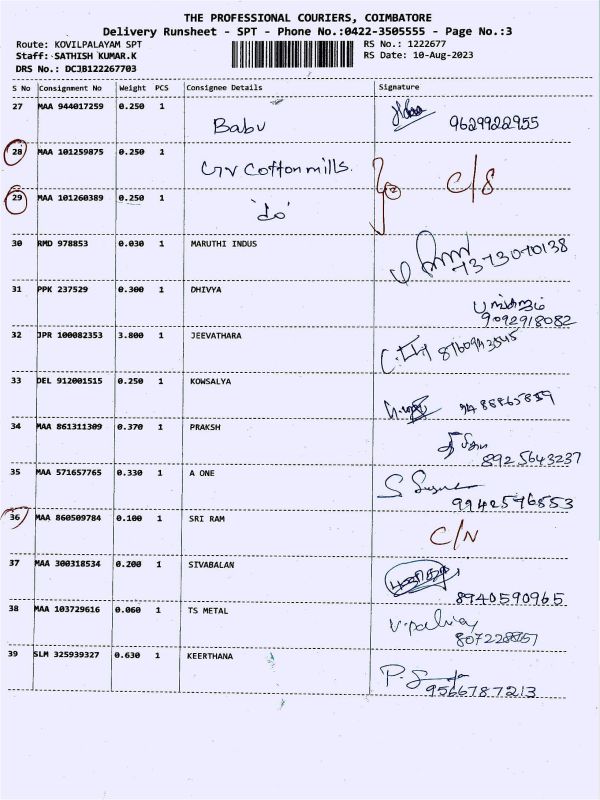 THE PROFESSIONAL COURIERS, COIMBATORE
Delivery Runsheet - SPT - Phone No.:0422-3505555 - Page No.:3
Route: KOVILPALAYAM SPT RS No.: 1222677
Staff: SATHISH KUMAR.K RS Date: 10-Aug-2023
DRS No.: DCJB122267703
S No Consignment No Weight PCS Consignee Details Signature
27 MAA 944017259 0.250 1 Babu 9629922955
28 MAA 101259875 0.250 1 GV Cotton mills. C/S
29 MAA 101260389 0.250 1 'do' 2
30 RMD 978853 0.030 1 MARUTHI INDUS 7373070138
31 PPK 237529 0.300 1 DHIVYA
9092918082
32 JPR 100082353 3.800 1 JEEVATHARA 8760943545
33 DEL 912001515 0.250 1 KOWSALYA
34 MAA 861311309 0.370 1 PRAKSH
8925643237
35 MAA 571657765 0.330 1 A ONE
9942576553
36 MAA 860509784 0.100 1 SRI RAM C/N
37 MAA 300318534 0.200 1 SIVABALAN
8940590965
38 MAA 103729616 0.060 1 TS METAL
39 SLM 325939327 0.630 1 KEERTHANA
9566787213